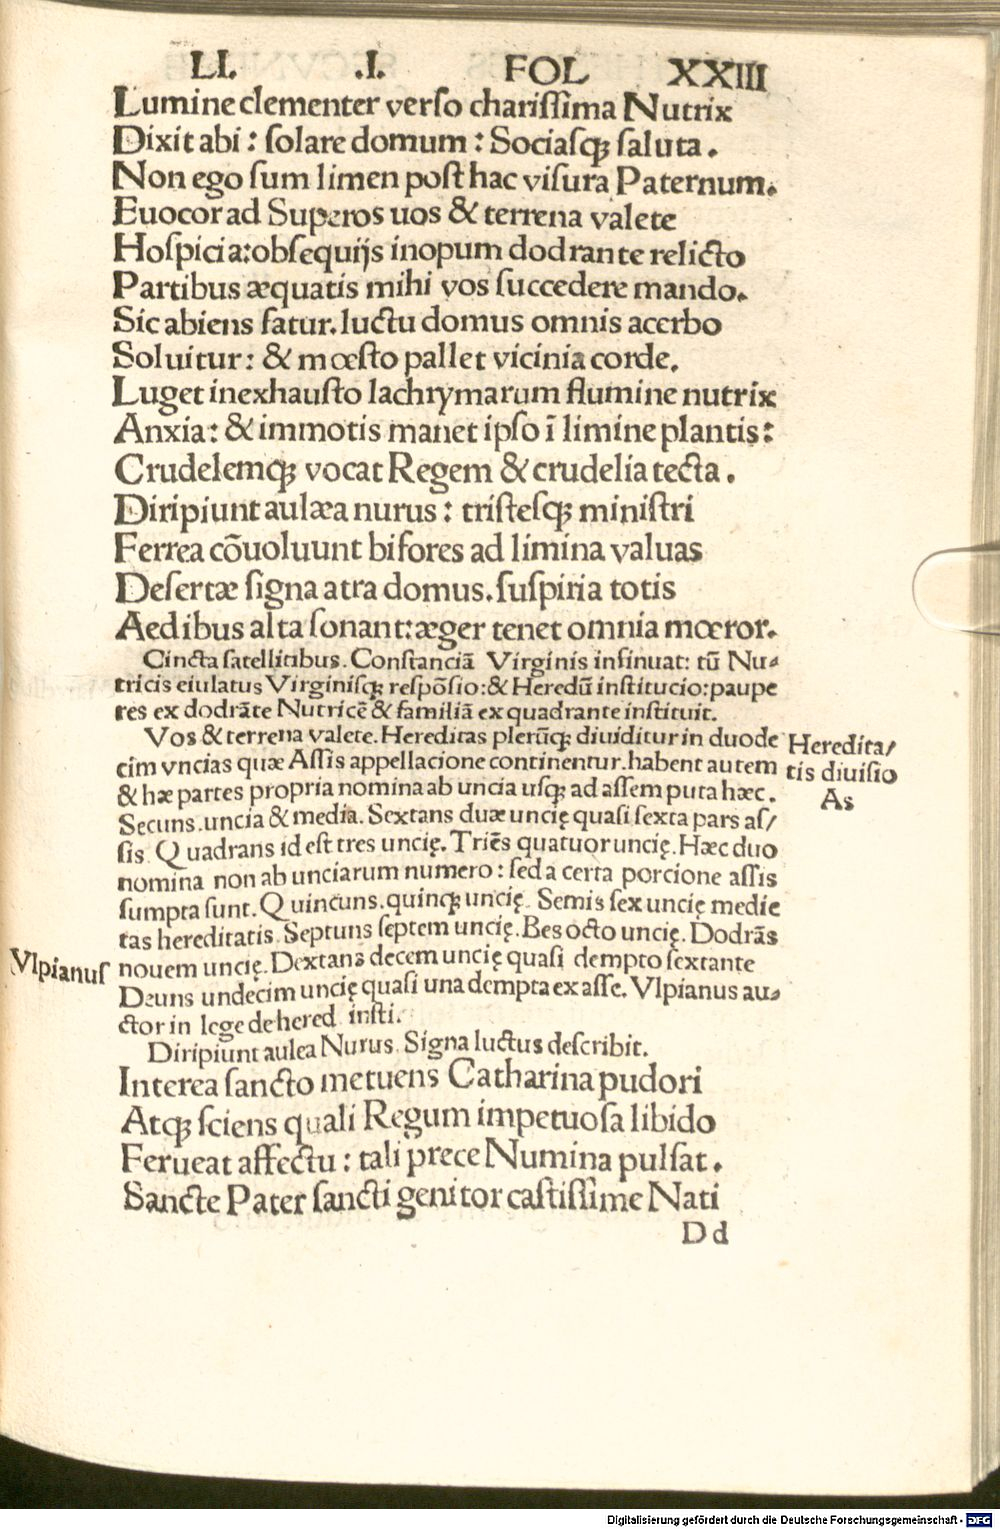 LI. .I. FOL XXIII
Lumine clementer verso charissima Nutrix
Dixit abi: solare domum: Sociasqꝫ saluta.
Non ego sum limen post hac visura Paternum.
Euocor ad Superos uos & terrena valete
Hospicia: obsequijs inopum dodrante relicto
Partibus æquatis mihi vos succedere mando.
Sic abiens fatur. luctu domus omnis acerbo
Soluitur: & mœsto pallet vicinia corde.
Luget inexhausto lachrymarum flumine nutrix
Anxia: & immotis manet ipso ī limine plantis:
Crudelemqꝫ vocat Regem & crudelia tecta.
Diripiunt aulæa nurus: tristesqꝫ ministri
Ferrea cōuoluunt bifores ad limina valuas
Desertæ signa atra domus. suspiria totis
Aedibus alta sonant: æger tenet omnia mœror.
Cincta satellitibus. Constanciā Virginis insinuat: tū Nu-
tricis eiulatus Virginisqꝫ respōsio: & Heredū institucio: paupe
res ex dodrāte Nutricē & familiā ex quadrante instituit.
Vos & terrena valete. Hereditas plerūqꝫ diuiditur in duode
cim vncias quæ Assis appellacione continentur. habent autem
Heredita/
tis diuisio
As
& hæ partes propria nomina ab uncia usqꝫ ad assem puta hæc.
Secuns. uncia & media. Sextans duæ uncię quasi sexta pars as/
sis Quadrans id est tres uncię. Triēs quatuor uncię. Hæc duo
nomina non ab unciarum numero: sed a certa porcione assis
sumpta sunt. Quincuns. quinqꝫ uncię. Semis sex uncię medie
tas hereditatis. Septuns septem uncię. Bes octo uncię. Dodrās
Vlpianus
nouem uncię. Dextans decem uncię quasi dempto sextante
Deuns undecim uncię quasi una dempta ex asse. Vlpianus au-
ctor in lege de hered insti.
Diripiunt aulea Nurus. Signa luctus describit.
Interea sancto metuens Catharina pudori
Atqꝫ sciens quali Regum impetuosa libido
Ferueat affectu: tali prece Numina pulsat.
Sancte Pater sancti genitor castissime Nati
Dd
Digitalisierung gefördert durch die Deutsche Forschungsgemeinschaft - DFG